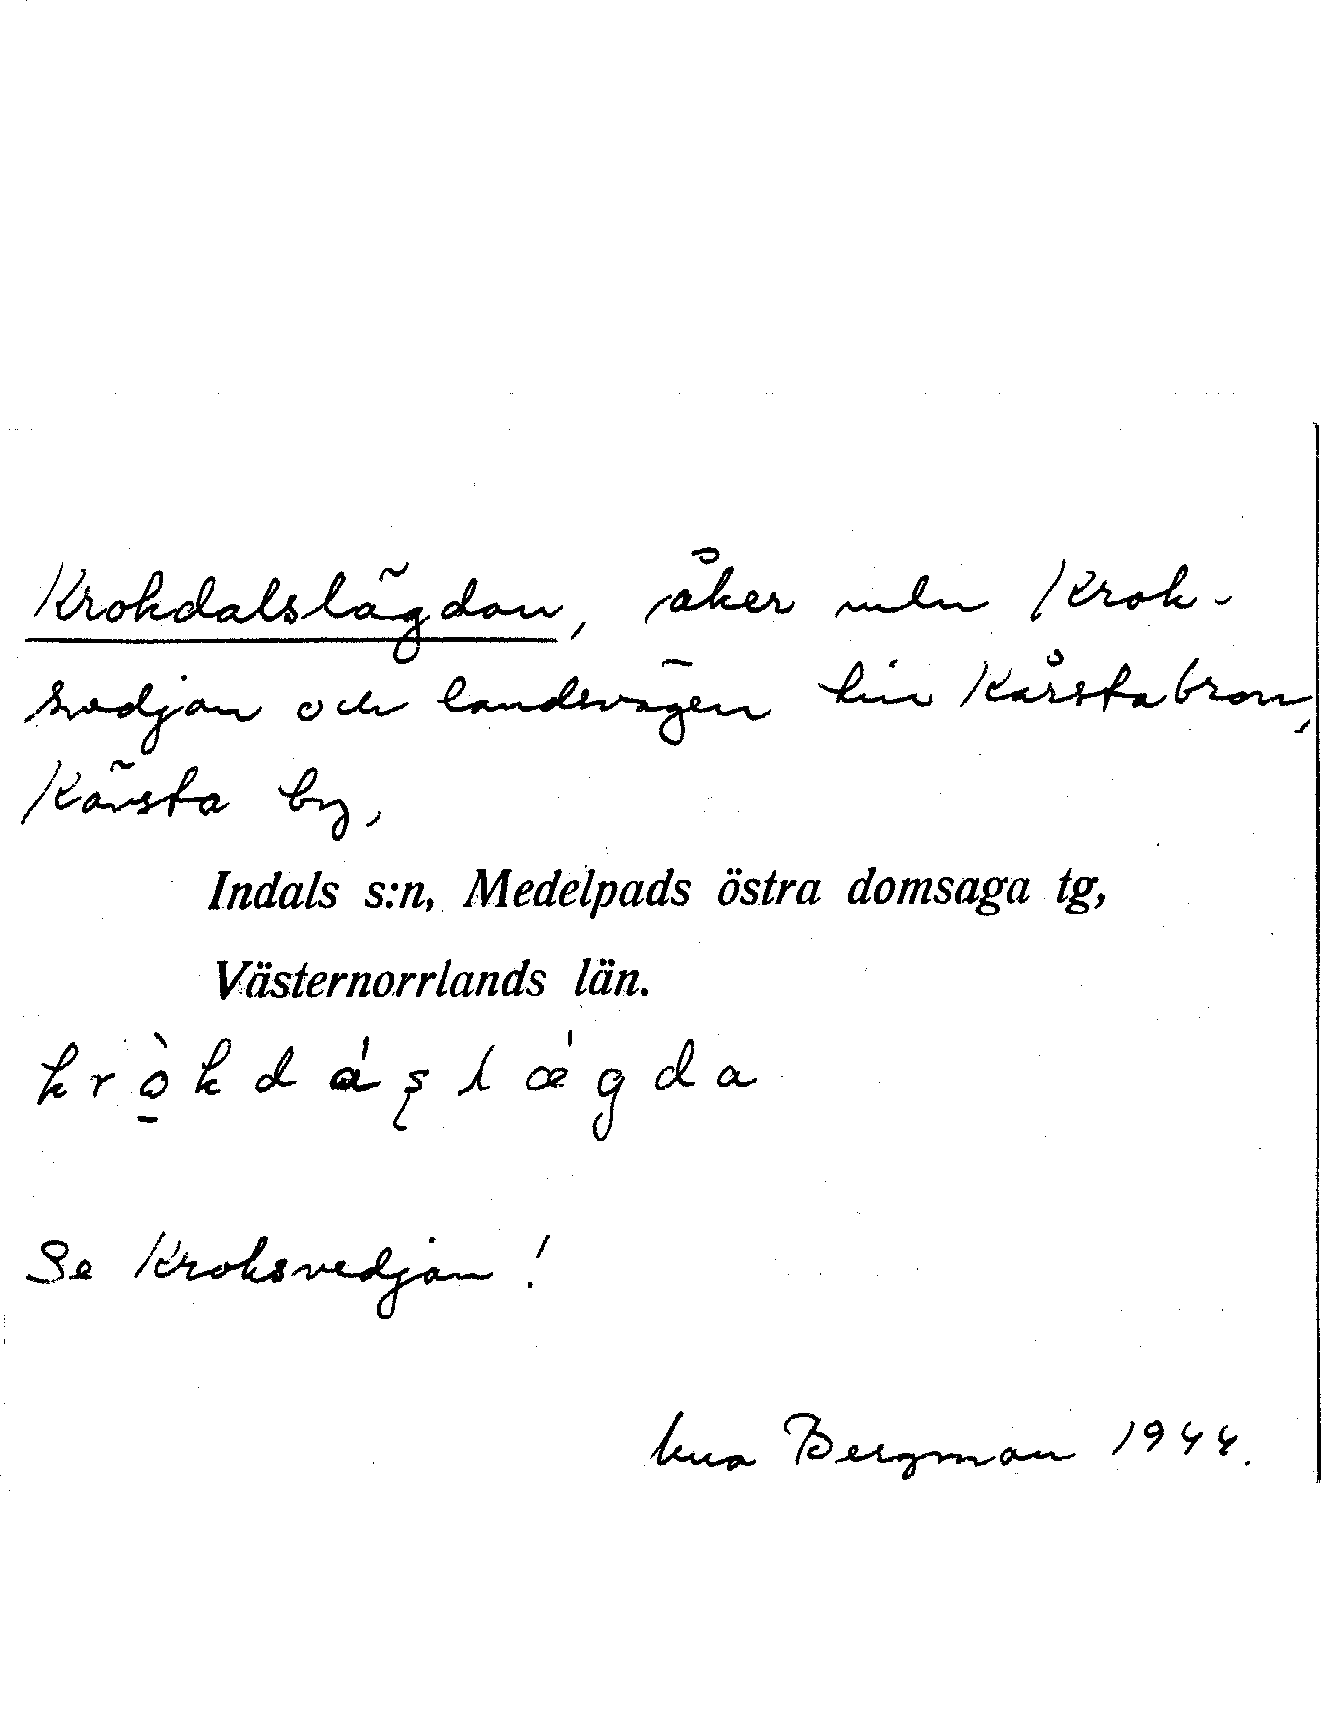 Krokdalslägdan, åker mln Krok-
svedjan och landsvägen till Kårstabron,
Kärsta by,
Indals s:n, Medelpads östra domsaga tg,
Västernorrlands län.
krò̱kdáʂlǽgda
Se Kroksvedjan!
Bergman 1944.